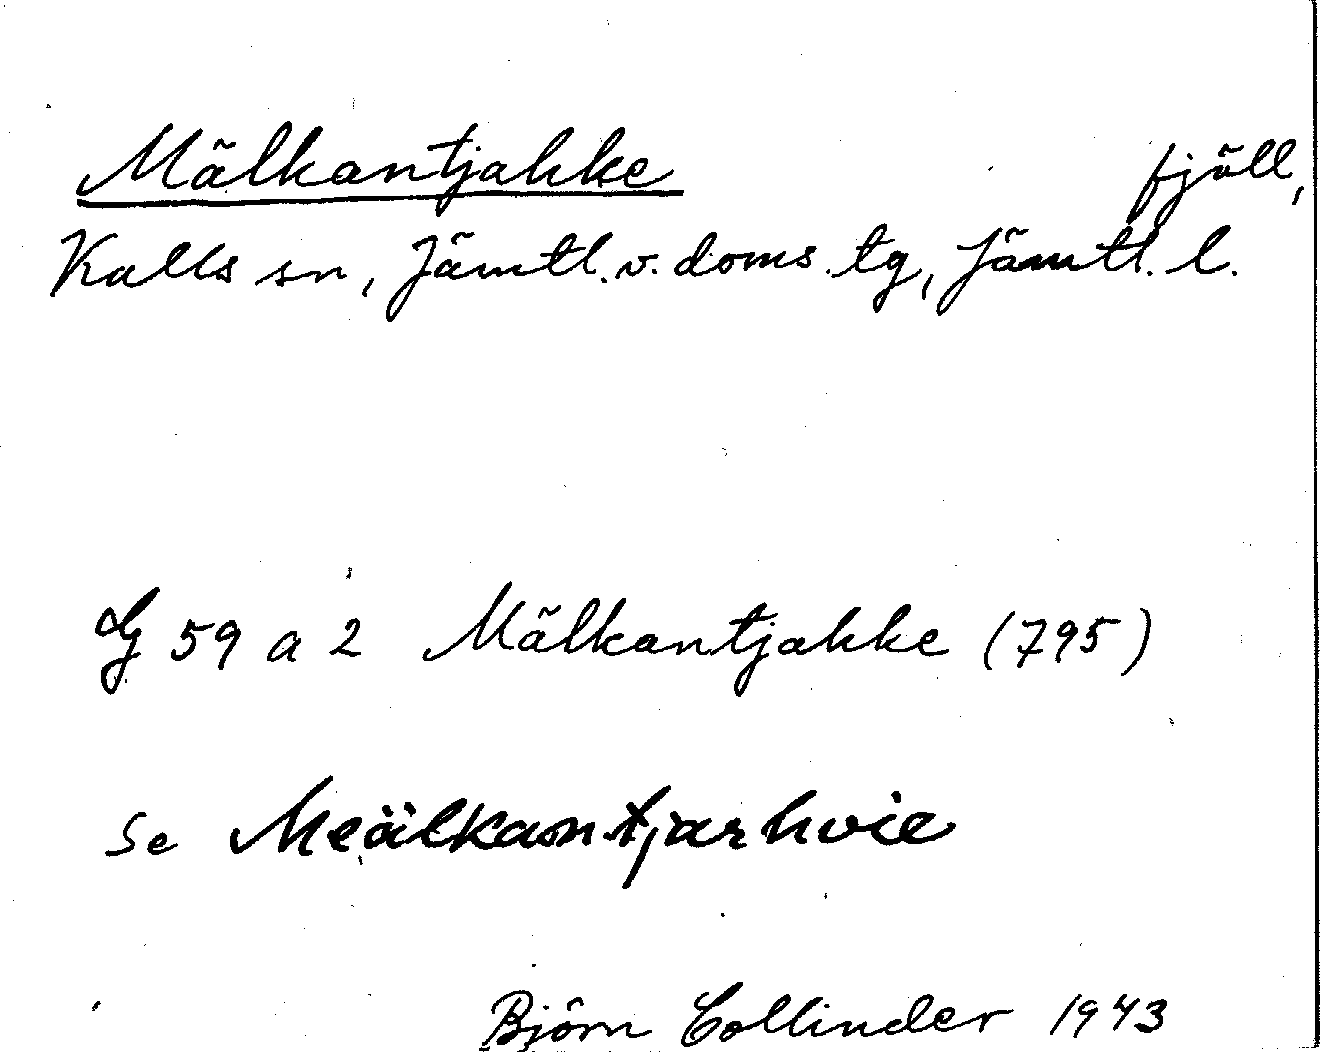 Mälkantjahke fjäll,
Kalls sn, Jämtl. v. doms. tg, Jämtl. l.
Lg 59 a 2 Mälkantjahke (795)
Se Meälkantjarhvie
Björn Collinder 1943